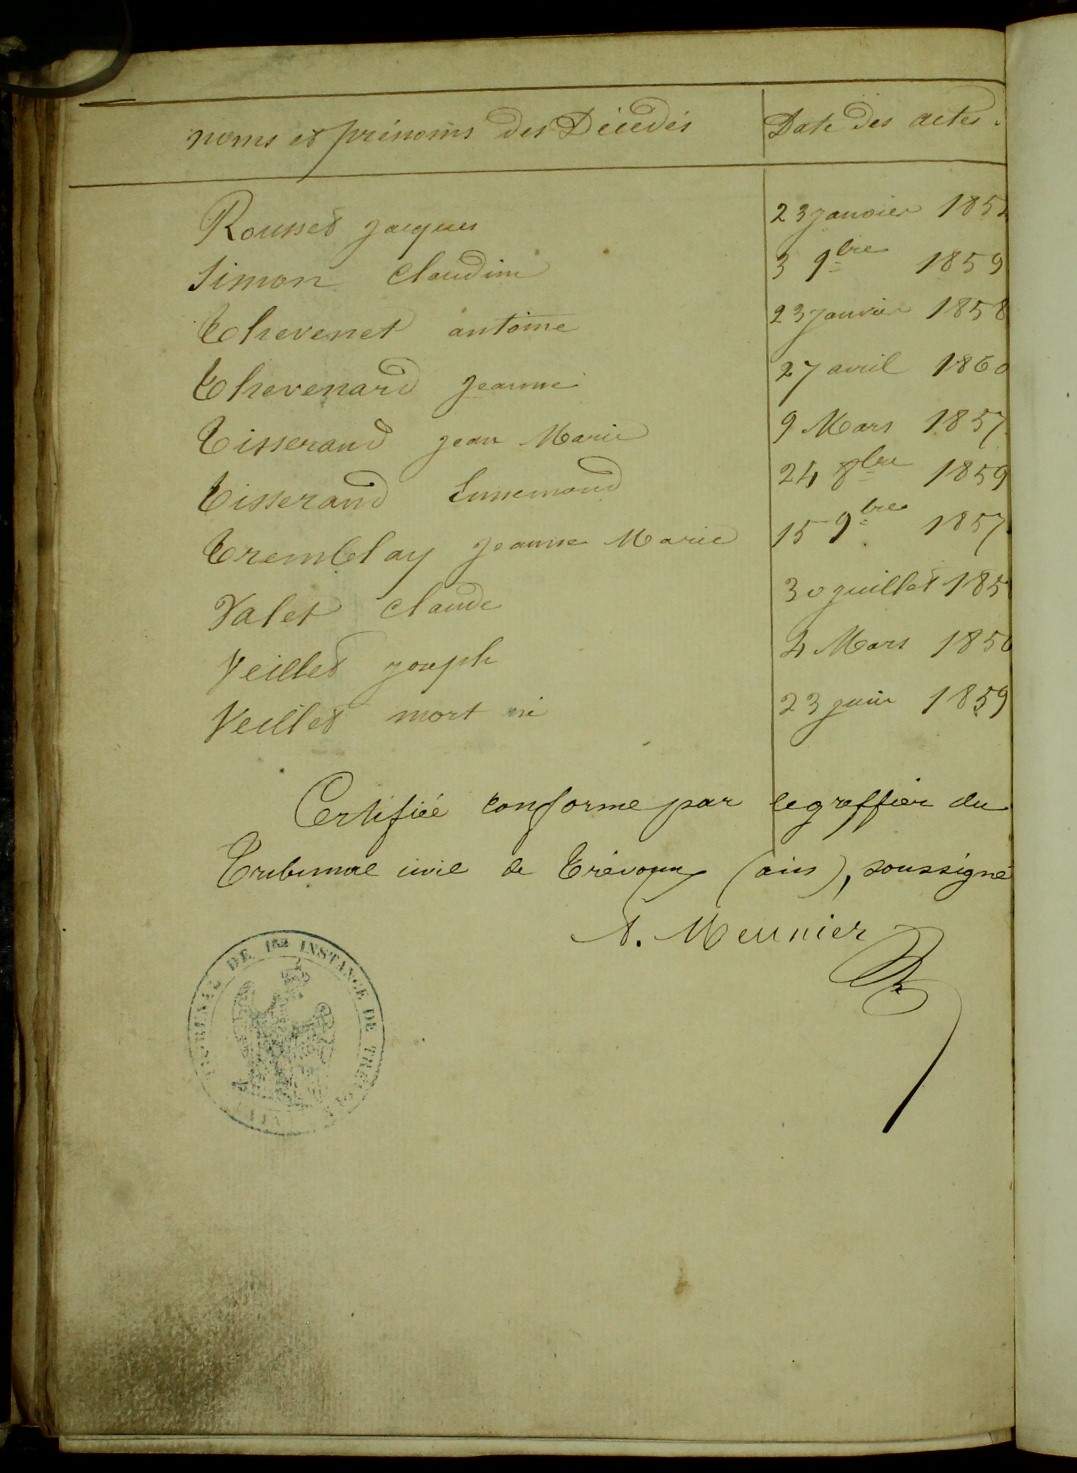 noms et prénoms des Décédés Date des actes.
Rousset Jacques 23 janvier
Simon Claudine 3 9bre 1859
Thevenet antoine 23 janvier 1858
Thevenard Jeanne 27 avril 1860
Tisserand Jean Marie 9 Mars 1857
Tisserand Ennemond 24 8bre 1859
Tremblay Jeanne Marie 15 9bre 1857
Valet Claude 30 juillet
Veillet joseph 4 Mars
Veillet mort né 23 juin 1859
Certifiée conforme par le greffier du
Tribunal civil de Trévoux (ain), soussigné
A. Meunier
TRIBUNAL DE 1RE INSTANCE DE TREVOUX
(AIN)